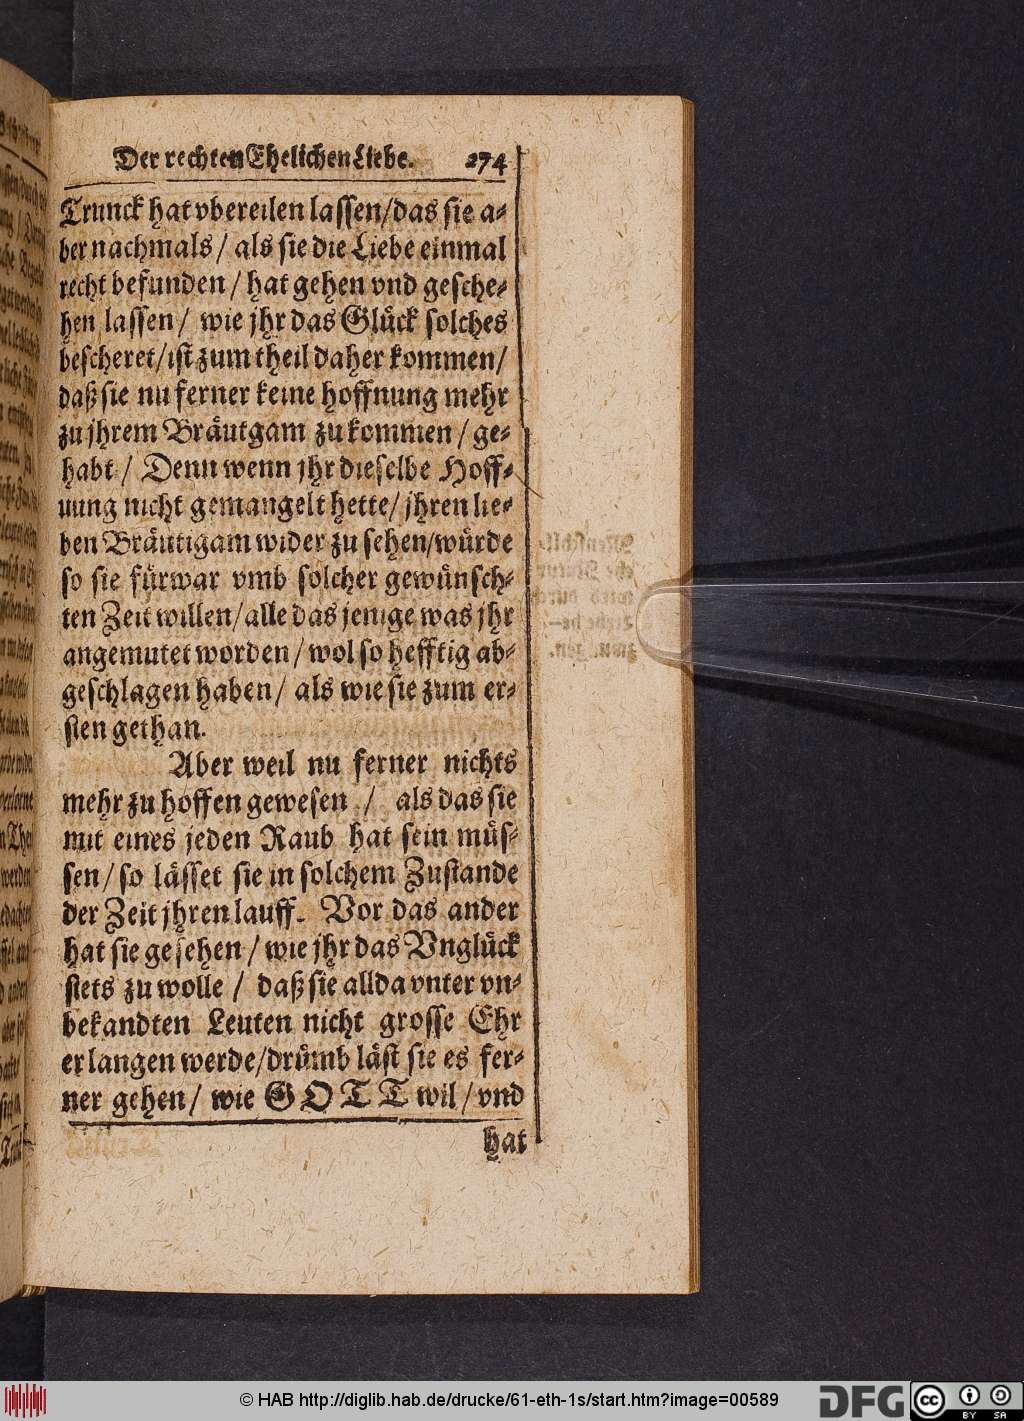 Der rechten Ehelichen Liebe. 274
Trunck hat vbereilen lassen/das sie a-
ber nachmals / als sie die Liebe einmal
recht befunden / hat gehen vnd gesche-
hen lassen / wie jhr das Glück solches
bescheret/ist zum theil daher kommen/
daß sie nu ferner keine hoffnung mehr
zu jhrem Bräutgam zu kommen / ge-
habt / Denn wenn jhr dieselbe Hoff-
nung nicht gemangelt hette/ jhren lie-
ben Bräutigam wider zu sehen/würde
so sie fürwar vmb solcher gewünsch-
ten Zeit willen/alle das jenige was jhr
angemutet worden / wol so hefftig ab-
geschlagen haben / als wie sie zum er-
sten gethan.
Aber weil nu ferner nichts
mehr zu hoffen gewesen / als das sie
mit eines jeden Raub hat sein müs-
sen / so lässet sie in solchem Zustande
der Zeit jhren lauff. Vor das ander
hat sie gesehen / wie jhr das Vnglück
stets zu wolle / daß sie allda vnter vn-
bekandten Leuten nicht grosse Ehr
erlangen werde/drümb läst sie es fer-
ner gehen / wie GOTT wil / vnd
hat
© HAB http://diglib.hab.de/drucke/61-eth-1s/start.htm?image=00589
DFG
cc
BY SA